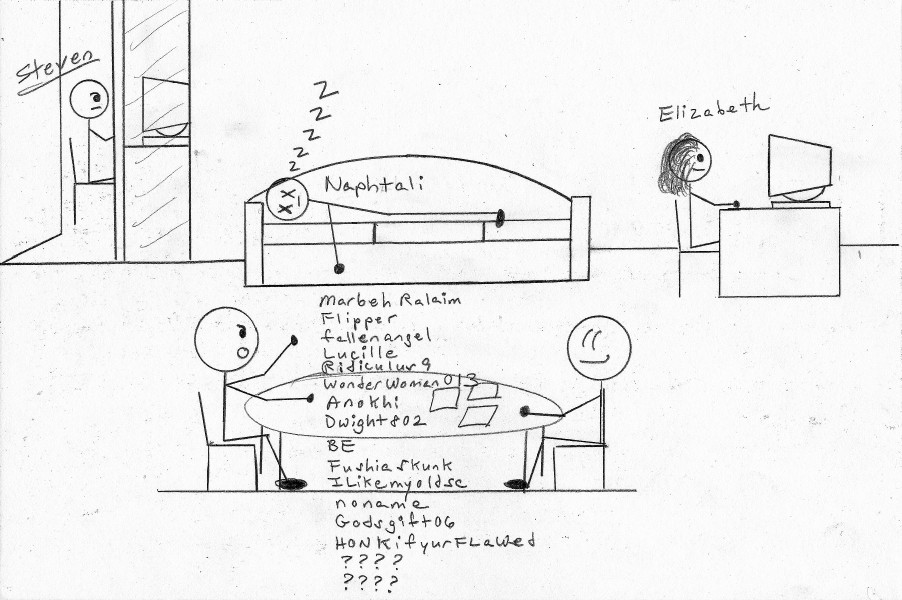 Steven
Z
Z
Z
Z
Z
Elizabeth
Naphtali
Marbeh Ralaim
Flipper
fallenangel
Lucille
Ridiculur9
WonderWoman013
Anokhi
Dwight802
BE
Fushiaskunk
ILikemyoldsc
noname
Godsgift06
HONKifyurFLawed
????
????